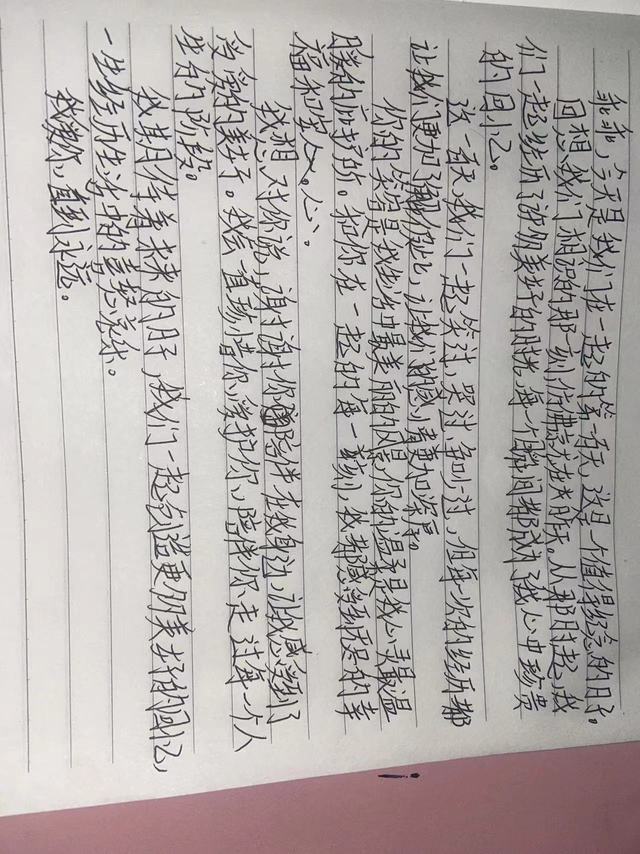 乖乖，今天是我们在一起的第一百天，这是一个值得纪念的日子。
回想我们相识的那一刻，仿佛就在昨天。从那时起，我
们一起经历了许多美好的时光，每一个瞬间都成为了我心中珍贵
的回忆。
这一百天，我们一起笑过，哭过，争吵过，但每一次的经历都
让我们更加了解彼此，让我们的感情更加深厚。
你的笑容是我生命中最美丽的风景，你的温柔是我心灵最温
暖的庇护所。和你在一起的每一刻，我都感受到无比的幸
福和安心。
我想对你说，谢谢你陪伴在我身边，让我感受到了
爱的美好。我会一直珍惜你，爱护你，陪伴你走过每一个人
生的阶段。
我期待着未来的日子，我们一起创造更多美好的回忆，
一生经历生活中的喜怒哀乐。
我爱你，直到永远。